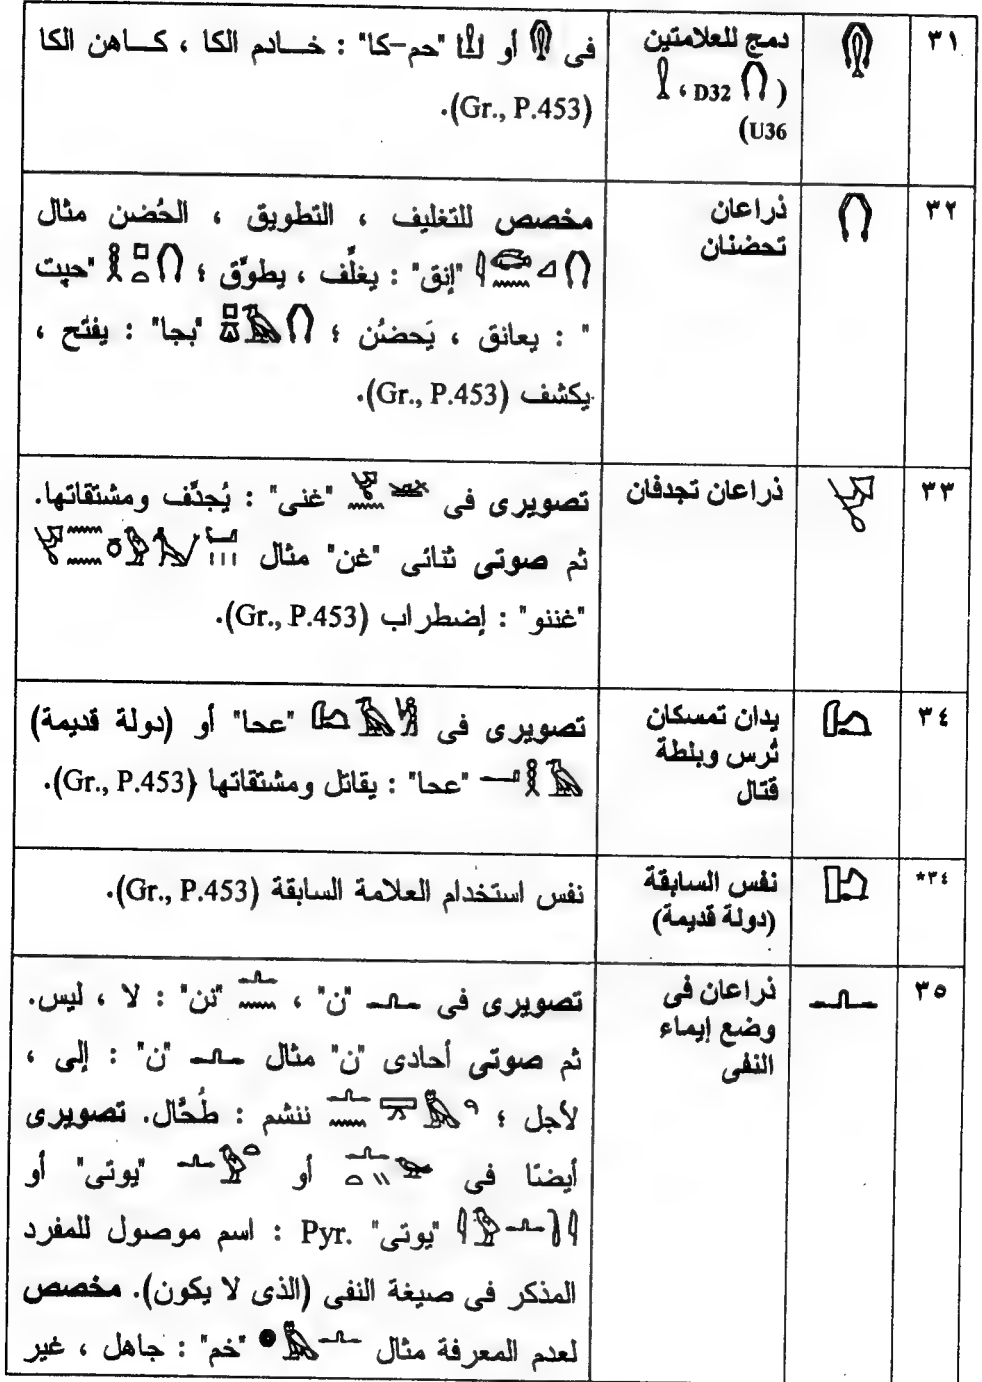 ٣١ دمج للعلامتين فى أو "حم-كا" : خادم الكا ، كاهن الكا
( D32 ، (Gr., P.453).
U36)
٣٢ ذراعان مخصص للتغليف ، التطويق ، الحُضن مثال
تحضنان "إنق" : يغلِّف ، يطوِّق ؛ "حپت
" : يعانق ، يَحضُن ؛ "پجا" : يفتح ،
يكشف (Gr., P.453).
٣٣ ذراعان تجدفان تصويرى فى "غنى" : يُجدِّف ومشتقاتها.
ثم صوتى ثنائى "غن" مثال
"غننو" : إضطراب (Gr., P.453).
٣٤ يدان تمسكان تصويرى فى "عحا" أو (دولة قديمة)
تُرس وبلطة "عحا" : يقاتل ومشتقاتها (Gr., P.453).
قتال
*٣٤ نفس السابقة نفس استخدام العلامة السابقة (Gr., P.453).
(دولة قديمة)
٣٥ ذراعان فى تصويرى فى "ن" ، "نن" : لا ، ليس.
وضع إيماء ثم صوتى أحادى "ن" مثال "ن" : إلى ،
النفى لأجل ؛ ننشم : طُحَّال. تصويرى
أيضًا فى أو "يوتى" أو
"يوتى" Pyr. : اسم موصول للمفرد
المذكر فى صيغة النفى (الذى لا يكون). مخصص
لعدم المعرفة مثال "خم" : جاهل ، غير